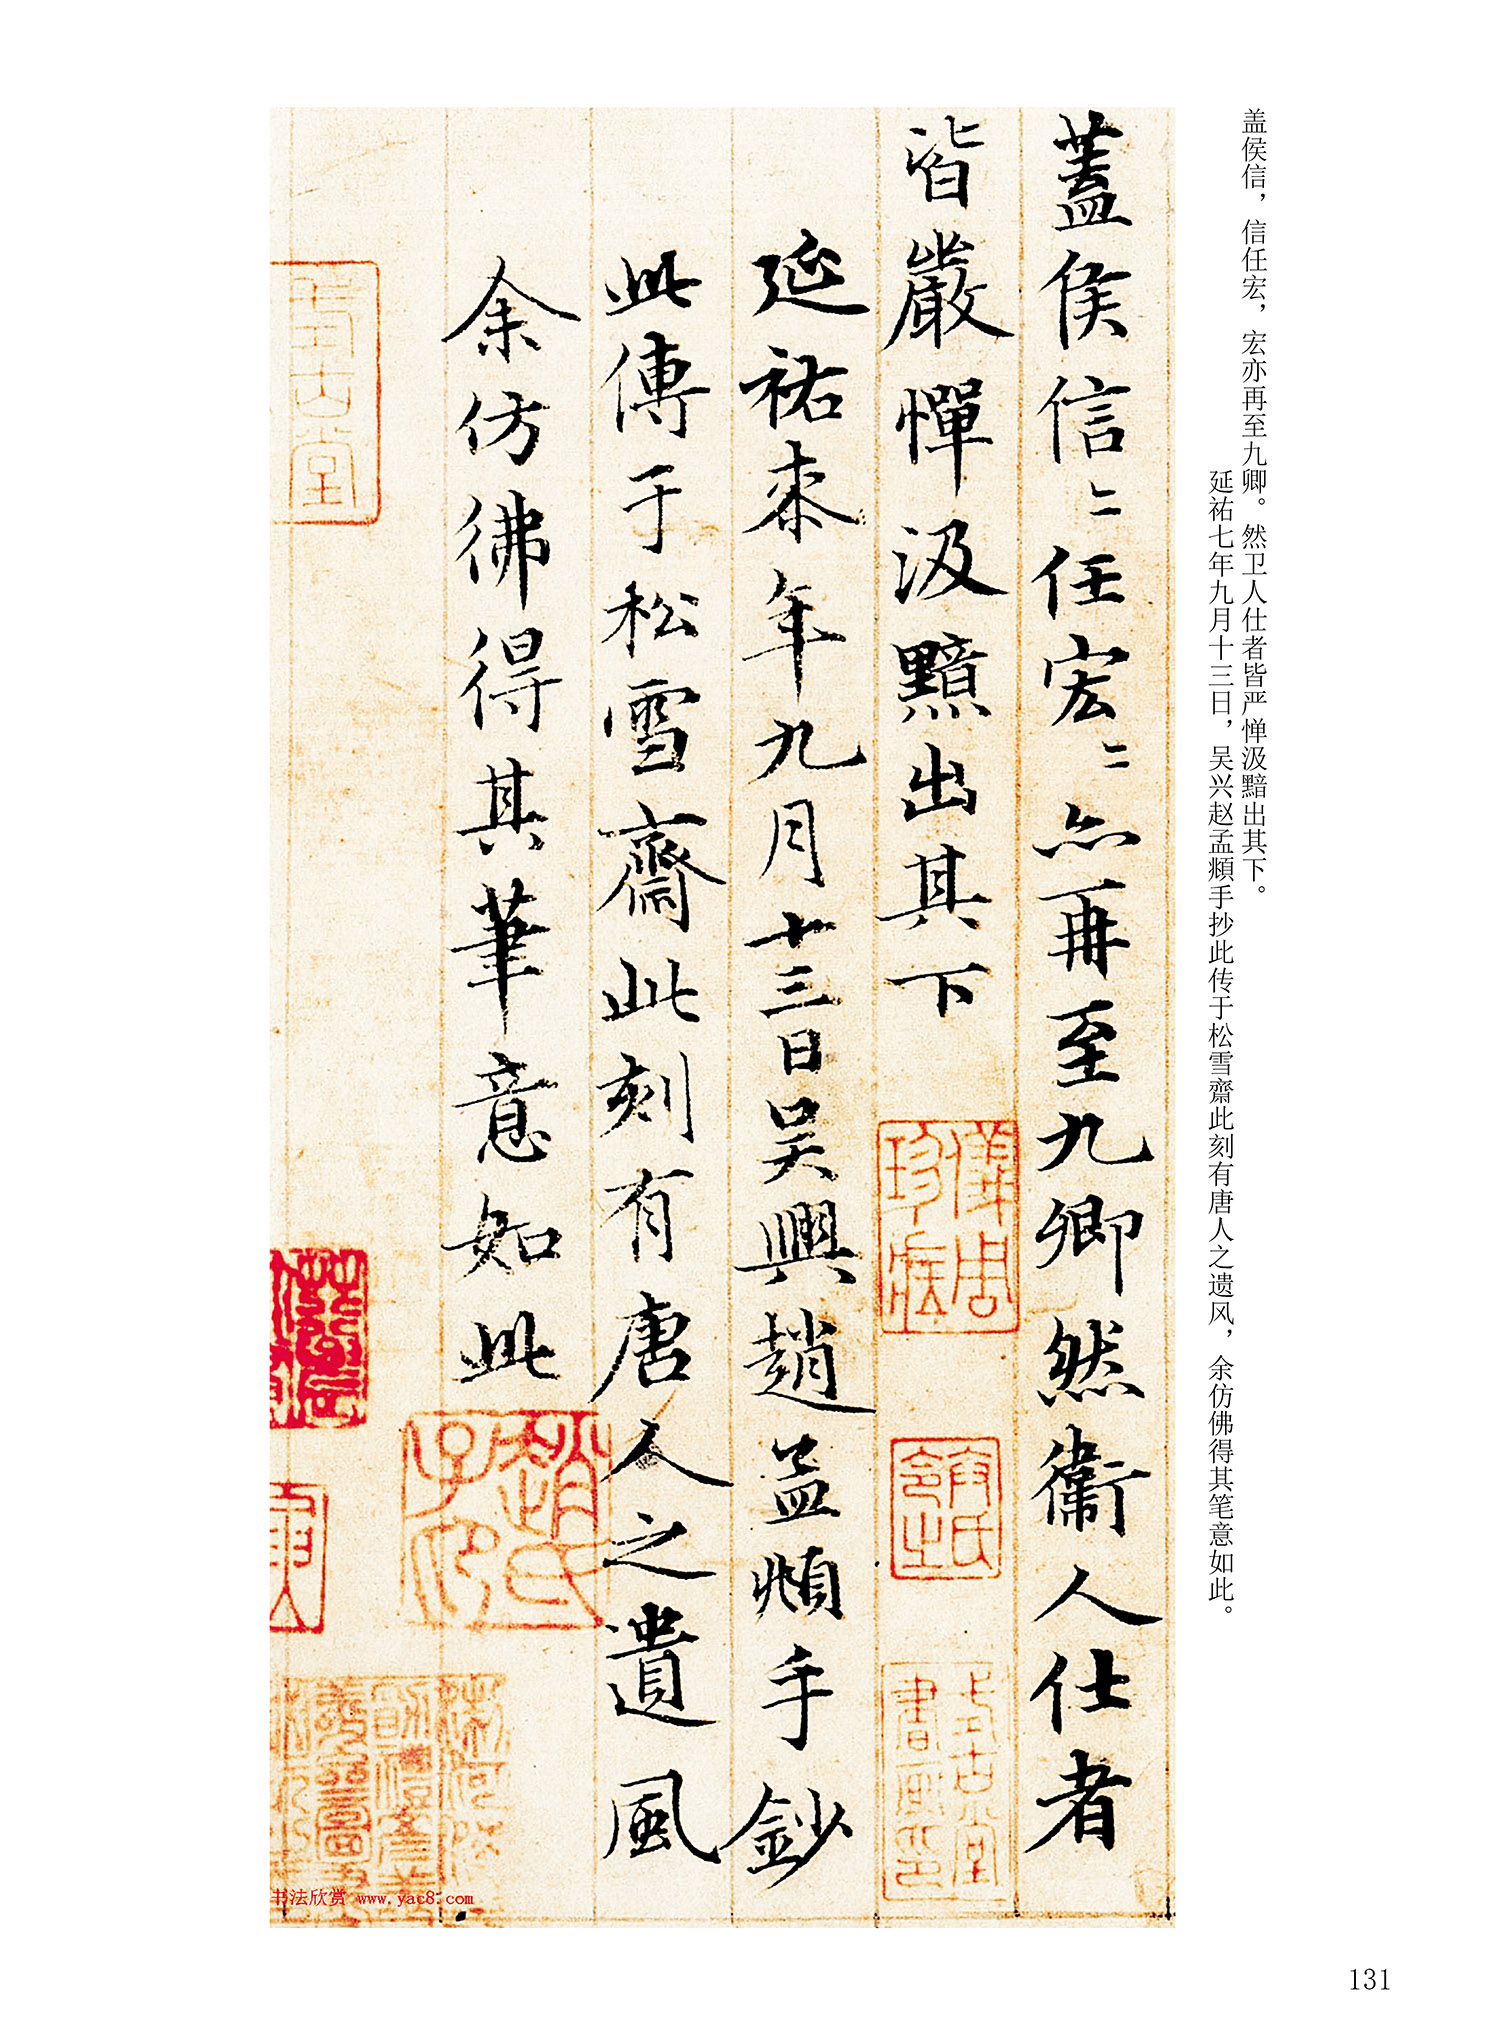 盖侯信，信任宏，宏亦再至九卿。然卫人仕者皆严惮汲黯出其下。
延祐七年九月十三日，吴兴赵孟頫手抄此传于松雪齋此刻有唐人之遗风，余仿佛得其笔意如此。
蓋侯信〻任宏〻亦再至九卿然衞人仕者
皆嚴憚汲黯出其下
延祐柒年九月十三日吴興趙孟頫手鈔
此傳于松雪齋此刻有唐人之遺風
余仿彿得其筆意如此
儀周珍藏
趙氏子昂
書法欣赏 www.yac8.com
131